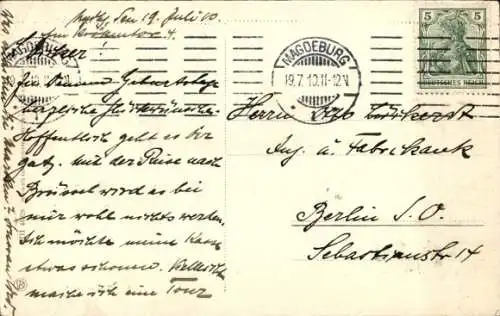 Mgdbg, den 19. Juli 10.
Am Krökentor 4.
MAGDEBURG
19.7.10.11-12V.
5 5
DEUTSCHES REICH
Zu Deinem Geburtstage
herzliche Glückwünsche.
Hoffentlich geht es Dir
gut. Mit der Reise nach
Brüssel wird es bei
mir wohl nichts werden.
Ich möchte meine Kasse
etwas schonen. Vielleicht
mache ich eine Tour
Herrn Otto
Ing. u. Fabrikant
Berlin S. O.
Sebastianstr 14